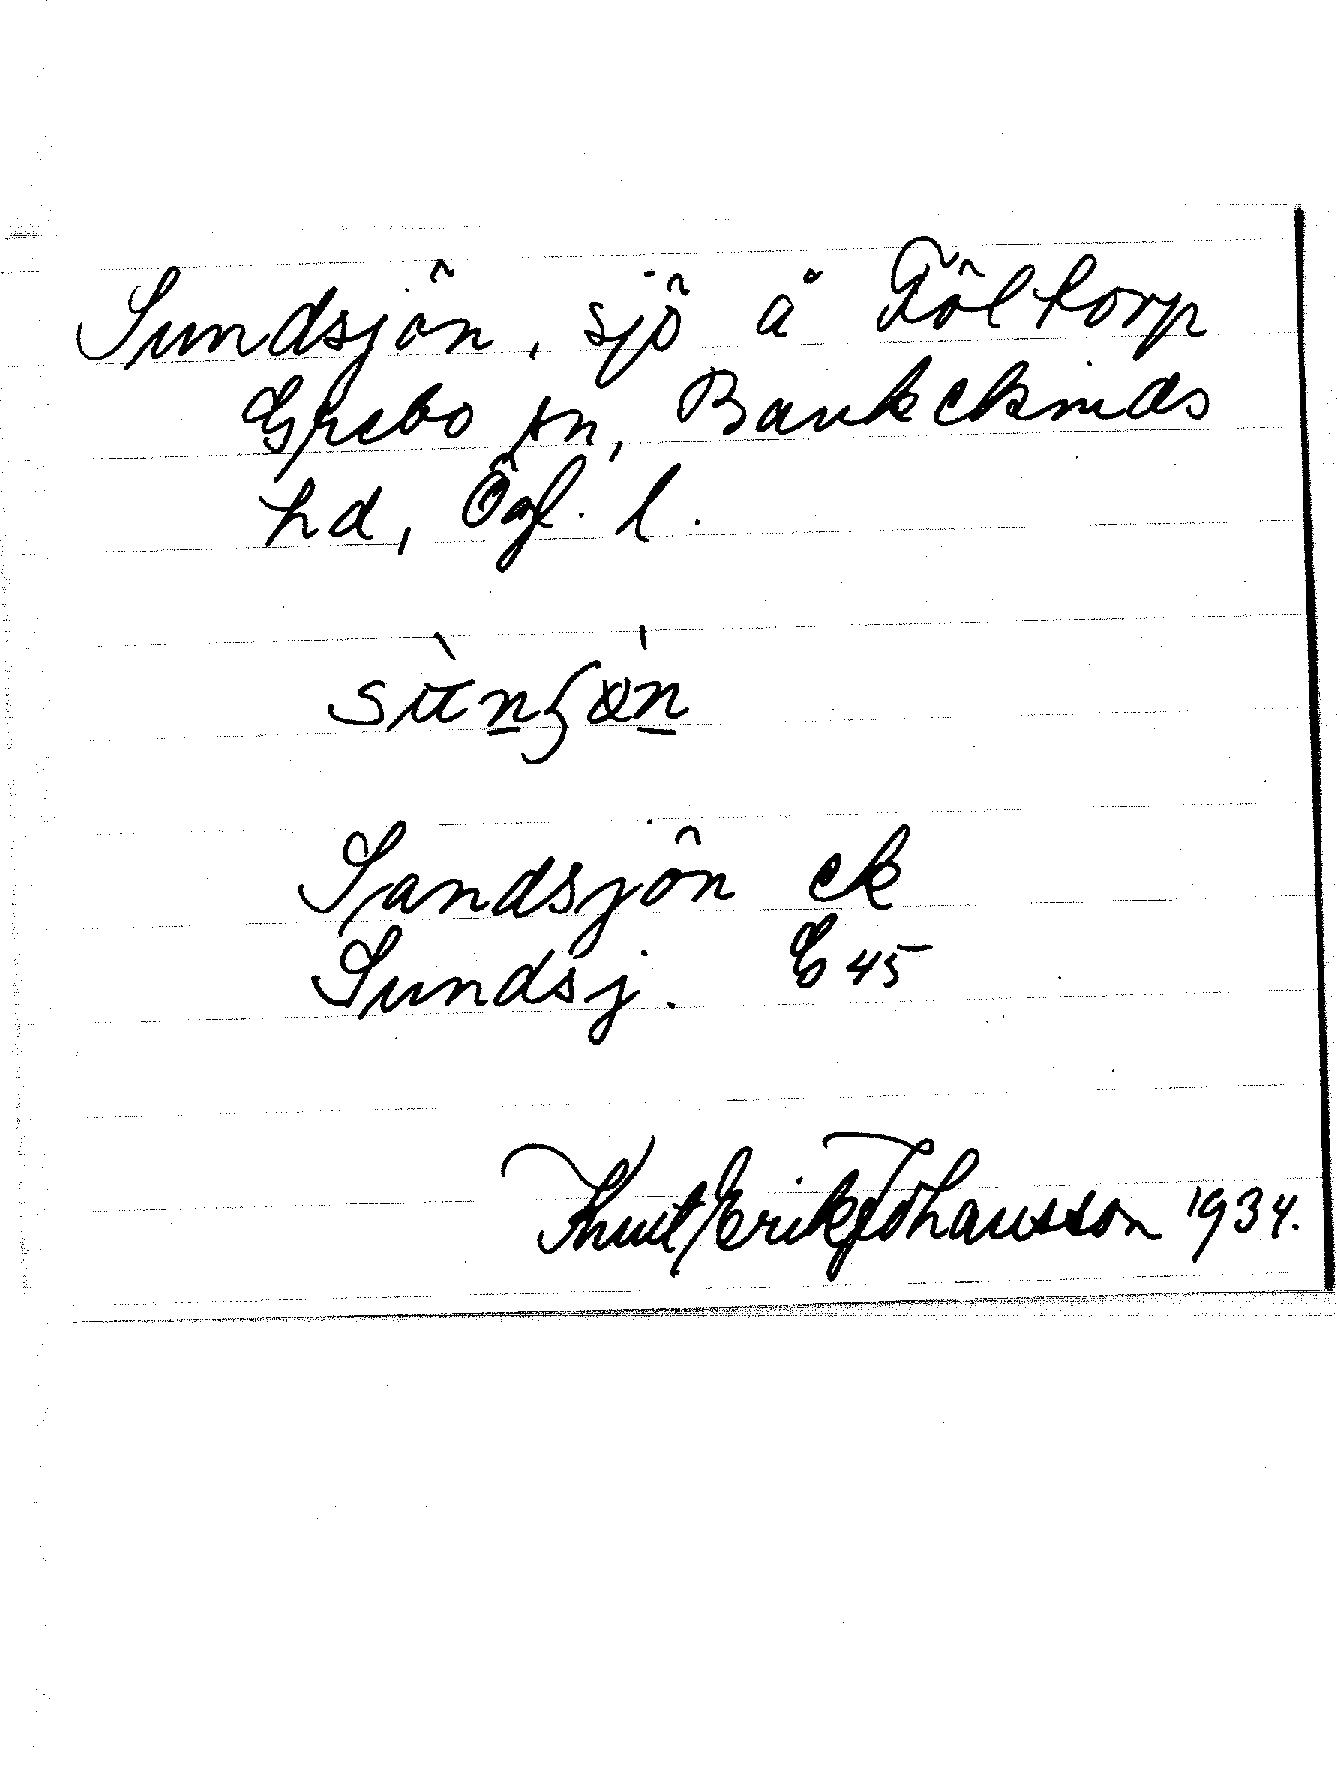 Sundsjön, sjö å Föltorp
Grebo sn, Bankekinds
hd, Ögl. l.
Sandsjön ek
Sundsj. E 45
Knut Erik Johansson 1934.